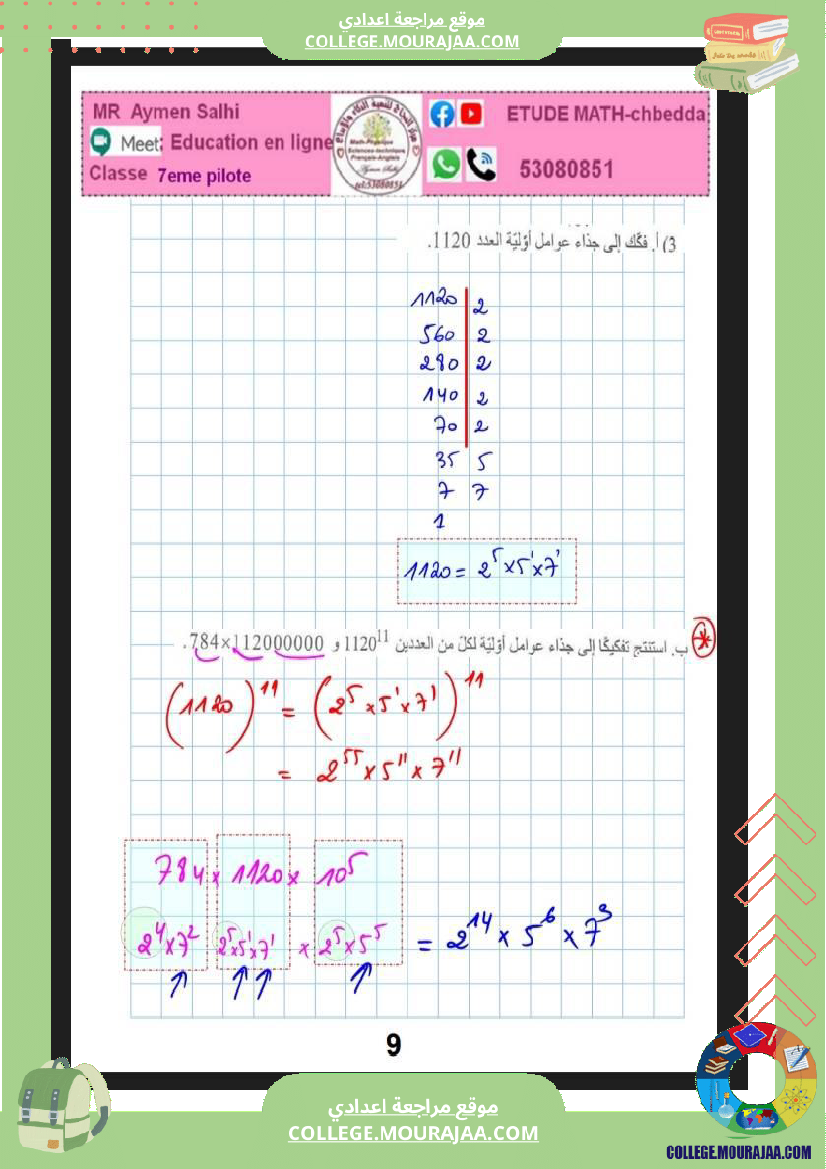 موقع مراجعة اعدادي
COLLEGE.MOURAJAA.COM
MR Aymen Salhi
Meet: Education en ligne
Classe 7eme pilote
Math-Physique
Sciences-technique
Français-Anglais
Aymen Salhi
tel:53080851
ETUDE MATH-chbedda
53080851
3) أ. فكّك إلى جذاء عوامل أوّليّة العدد 1120.
1120 | 2
560 | 2
280 | 2
140 | 2
70 | 2
35 5
7 7
1
1120 = 2⁵ × 5¹ × 7¹
ب. استنتج تفكيكًا إلى جذاء عوامل أوّليّة لكلّ من العددين 1120¹¹ و 784×112000000.
(1120)¹¹ = (2⁵ × 5¹ × 7¹)¹¹
= 2⁵⁵ × 5¹¹ × 7¹¹
784 × 1120 × 10⁵
2⁴×7² 2⁵×5¹×7¹ × 2⁵×5⁵ = 2¹⁴ × 5⁶ × 7³
9
موقع مراجعة اعدادي
COLLEGE.MOURAJAA.COM
COLLEGE.MOURAJAA.COM